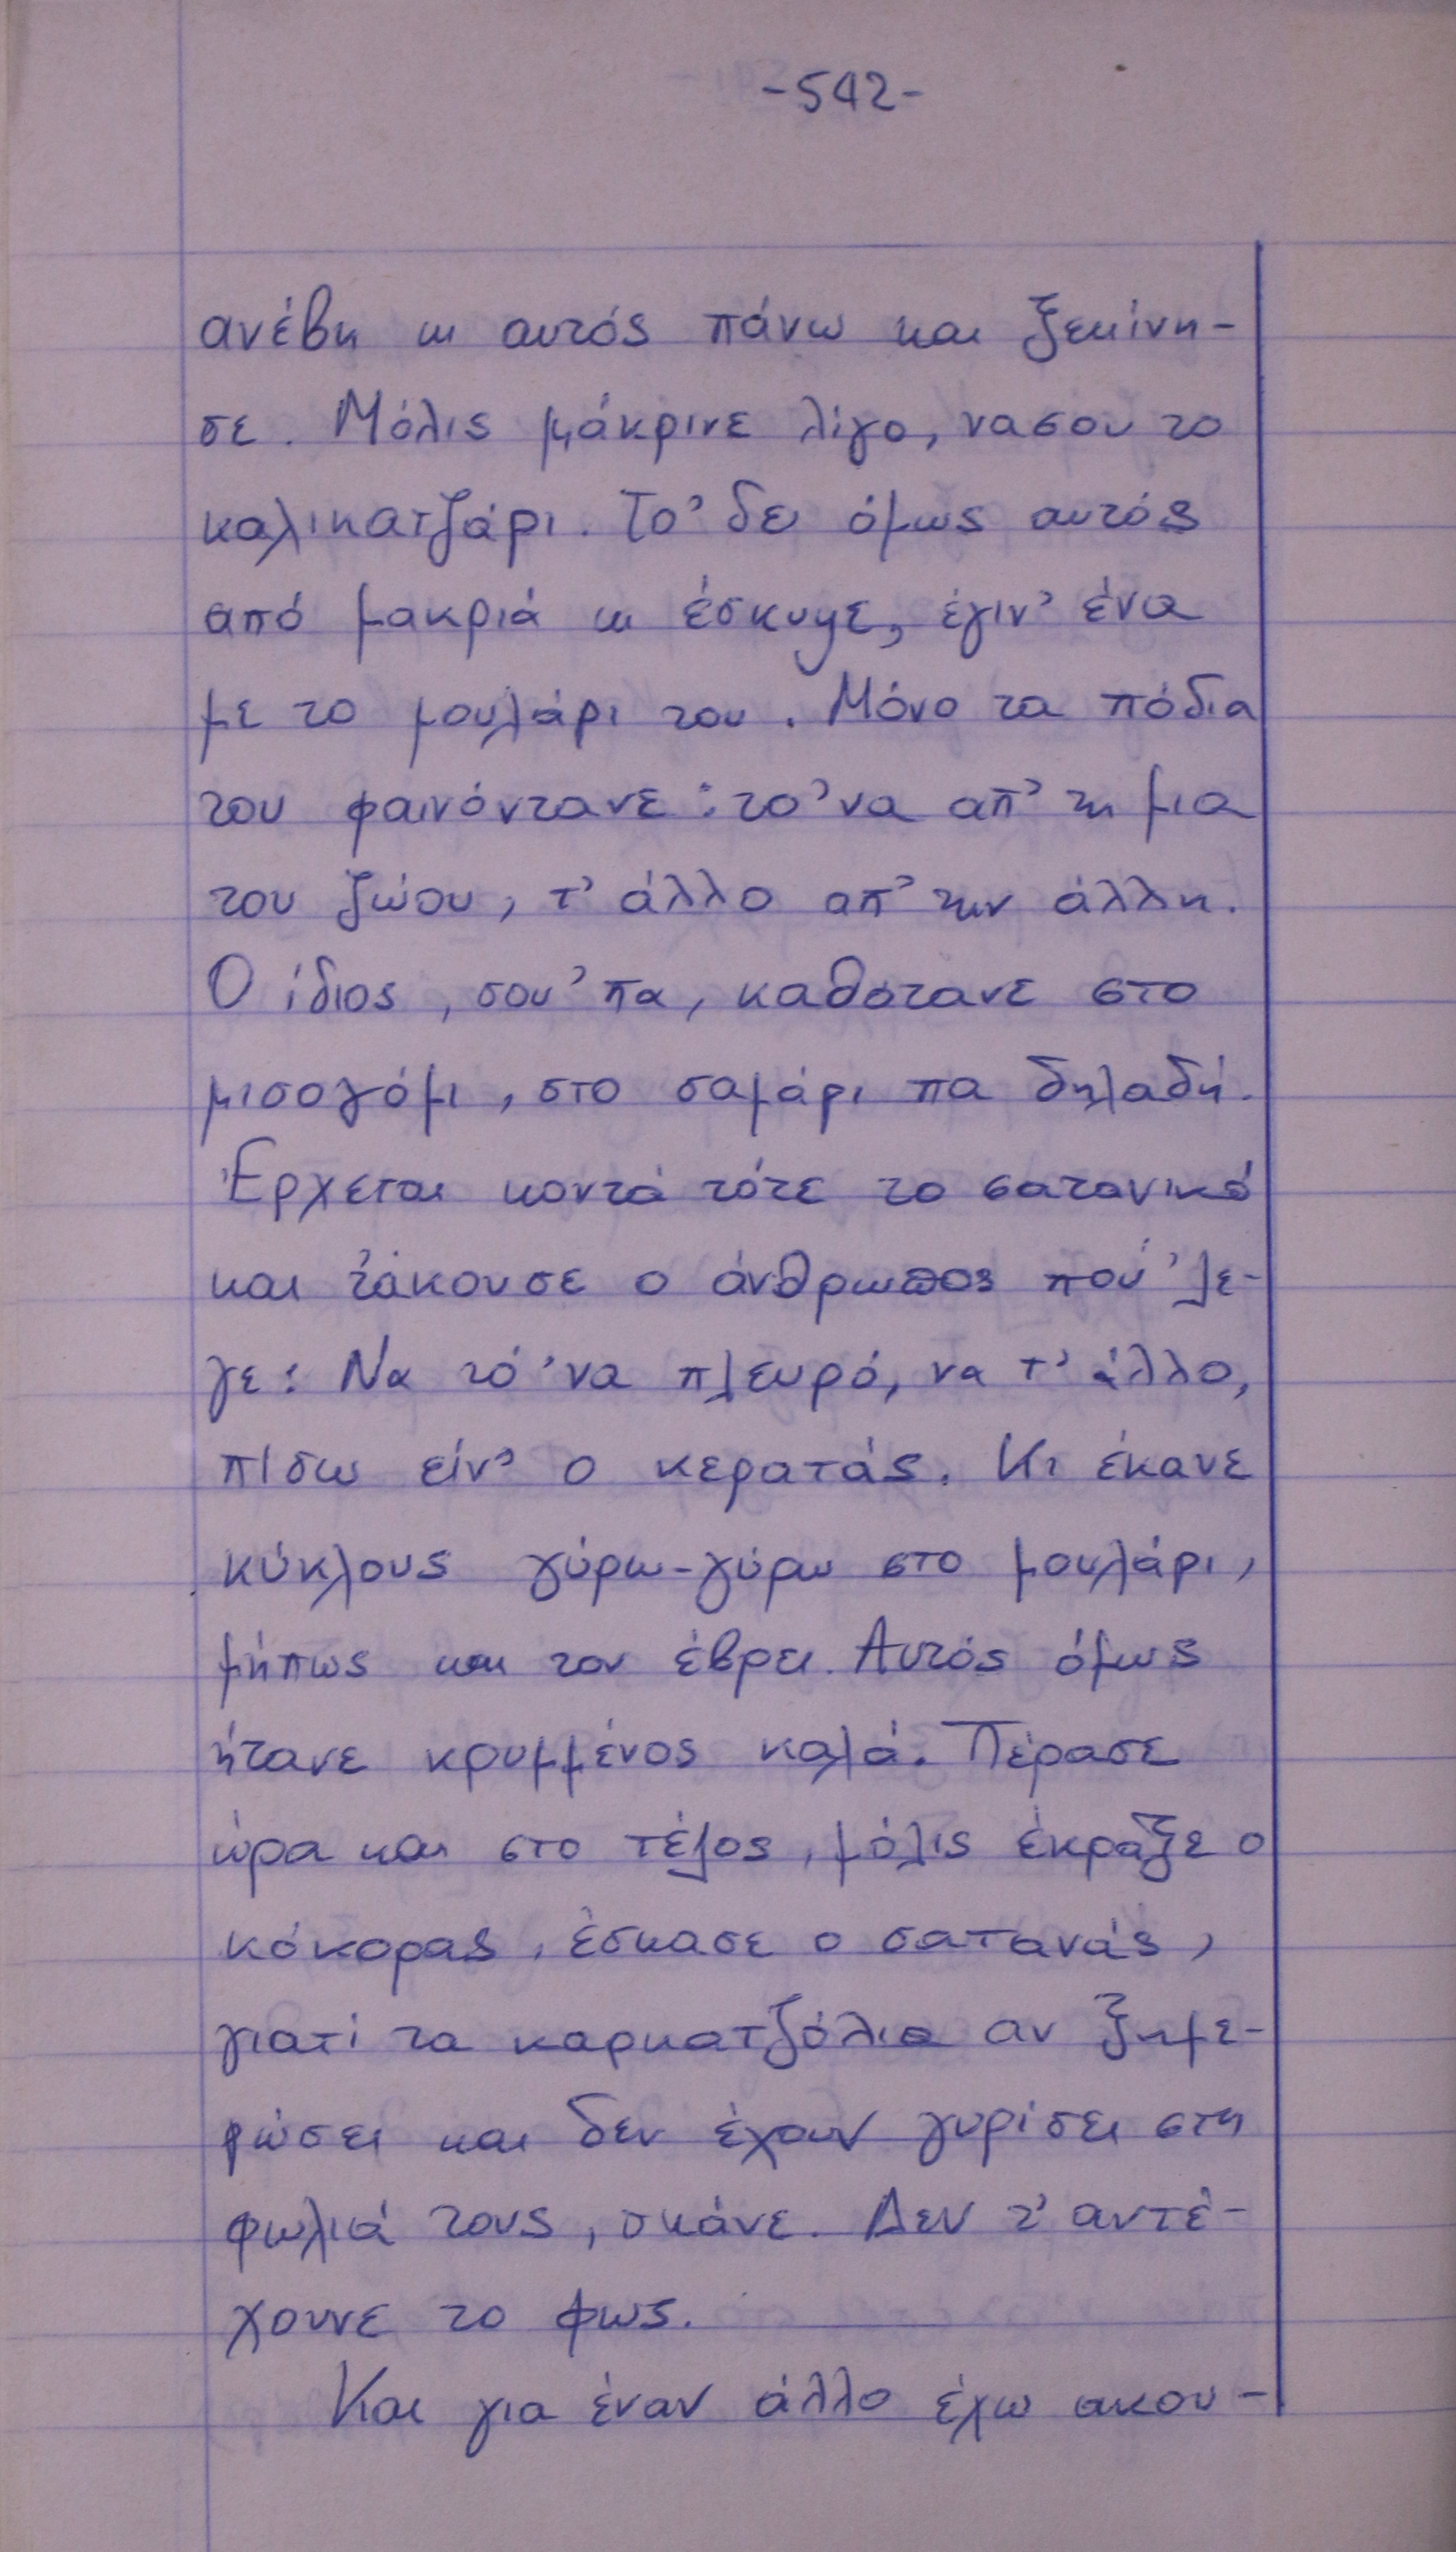 -542-
ανέβη κι αυτός πάνω και ξεκίνη-
σε. Μόλις μάκρινε λίγο, νασου το
καλικατζάρι. Το' δει όμως αυτός
από μακριά κι έσκυψε, έγιν' ένα
με το μουλάρι του. Μόνο τα πόδια
του φαινόντανε: το' να απ' τη μια
του ζώου, τ' άλλο απ' την άλλη.
Ο ίδιος, σου' πα, καθότανε στο
μισογόμι, στο σαμάρι πα δηλαδή.
Έρχεται κοντά τότε το σατανικό
και τ' άκουσε ο άνθρωπος που' λε-
γε: Να τό' να πλευρό, να τ' άλλο,
πίσω είν' ο κερατάς. Κι έκανε
κύκλους γύρω-γύρω στο μουλάρι,
μήπως και τον έβρει. Αυτός όμως
ήτανε κρυμμένος καλά. Πέρασε
ώρα και στο τέλος, μόλις έκραξε ο
κόκορας, έσκασε ο σατανάς,
γιατί τα καρκατζόλια αν ξημε-
ρώσει και δεν έχουν γυρίσει στη
φωλιά τους, σκάνε. Δεν τ' αντέ-
χουνε το φως.
Και για έναν άλλο έχω ακου-